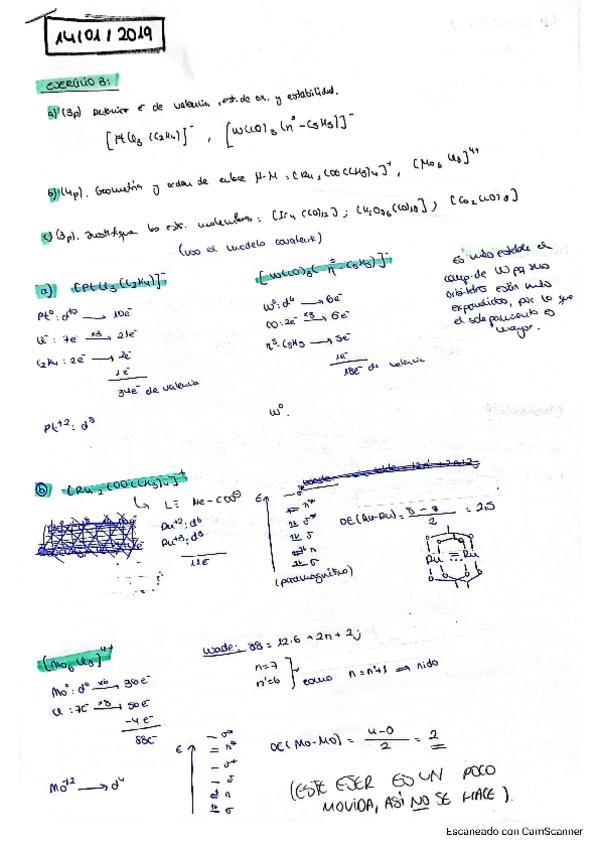 14/01/2019
EJERCICIO 3:
a) (3p) Determinar e⁻ de valencia, est. de ox. y estabilidad.
[PtCl₃(C₂H₄)]⁻ , [W(CO)₃(η⁵-C₅H₅)]⁻
b) (4p). Geometría y orden de enlace M-M: [Ru₂(OOCCH₃)₄]⁺, [Mo₆Cl₈]⁴⁺
c) (3p). Justifique las est. moleculares:
(uso el modelo covalente)
a) [PtCl₃(C₂H₄)]⁻
Pt⁰: d¹⁰ → 10e⁻
Cl⁻: 7e⁻ x3→ 21e⁻
C₂H₄: 2e⁻ → 2e⁻
1e⁻
34e⁻ de valencia
Pt⁺²: d⁸
[W(CO)₃(η⁵-C₅H₅)]⁻
W⁰: d⁶ → 6e⁻
CO: 2e⁻ x3→ 6e⁻
η⁵-C₅H₅ → 5e⁻
1e⁻
18e⁻ de valencia
W⁰.
Es más estable el
comp. de W pq sus
orbitales están más
expandidos, por lo que
el solapamiento es
mayor.
b)
L≡ Me-COO⁻
Ru⁺²: d⁶
Ru⁺³: d⁵
11e⁻
E
(paramagnético)
OE(Ru-Ru) = = 2,5
Ru Ru
[Mo₆Cl₈]⁴⁺
Mo⁰: d⁶ x6→
Cl: 7e⁻ x8→
-4e⁻
88e⁻
Mo⁺² → d⁴
Wade: 88 = 12·6 + 2n + 2;
n=7
n'=6
como n = n'+1 ⇒ nido
E
OE(Mo-Mo) = 4-0 / 2 = 2
(ESTE EJER ES UN POCO
MOVIDA, ASÍ NO SE HACE).
Escaneado con CamScanner